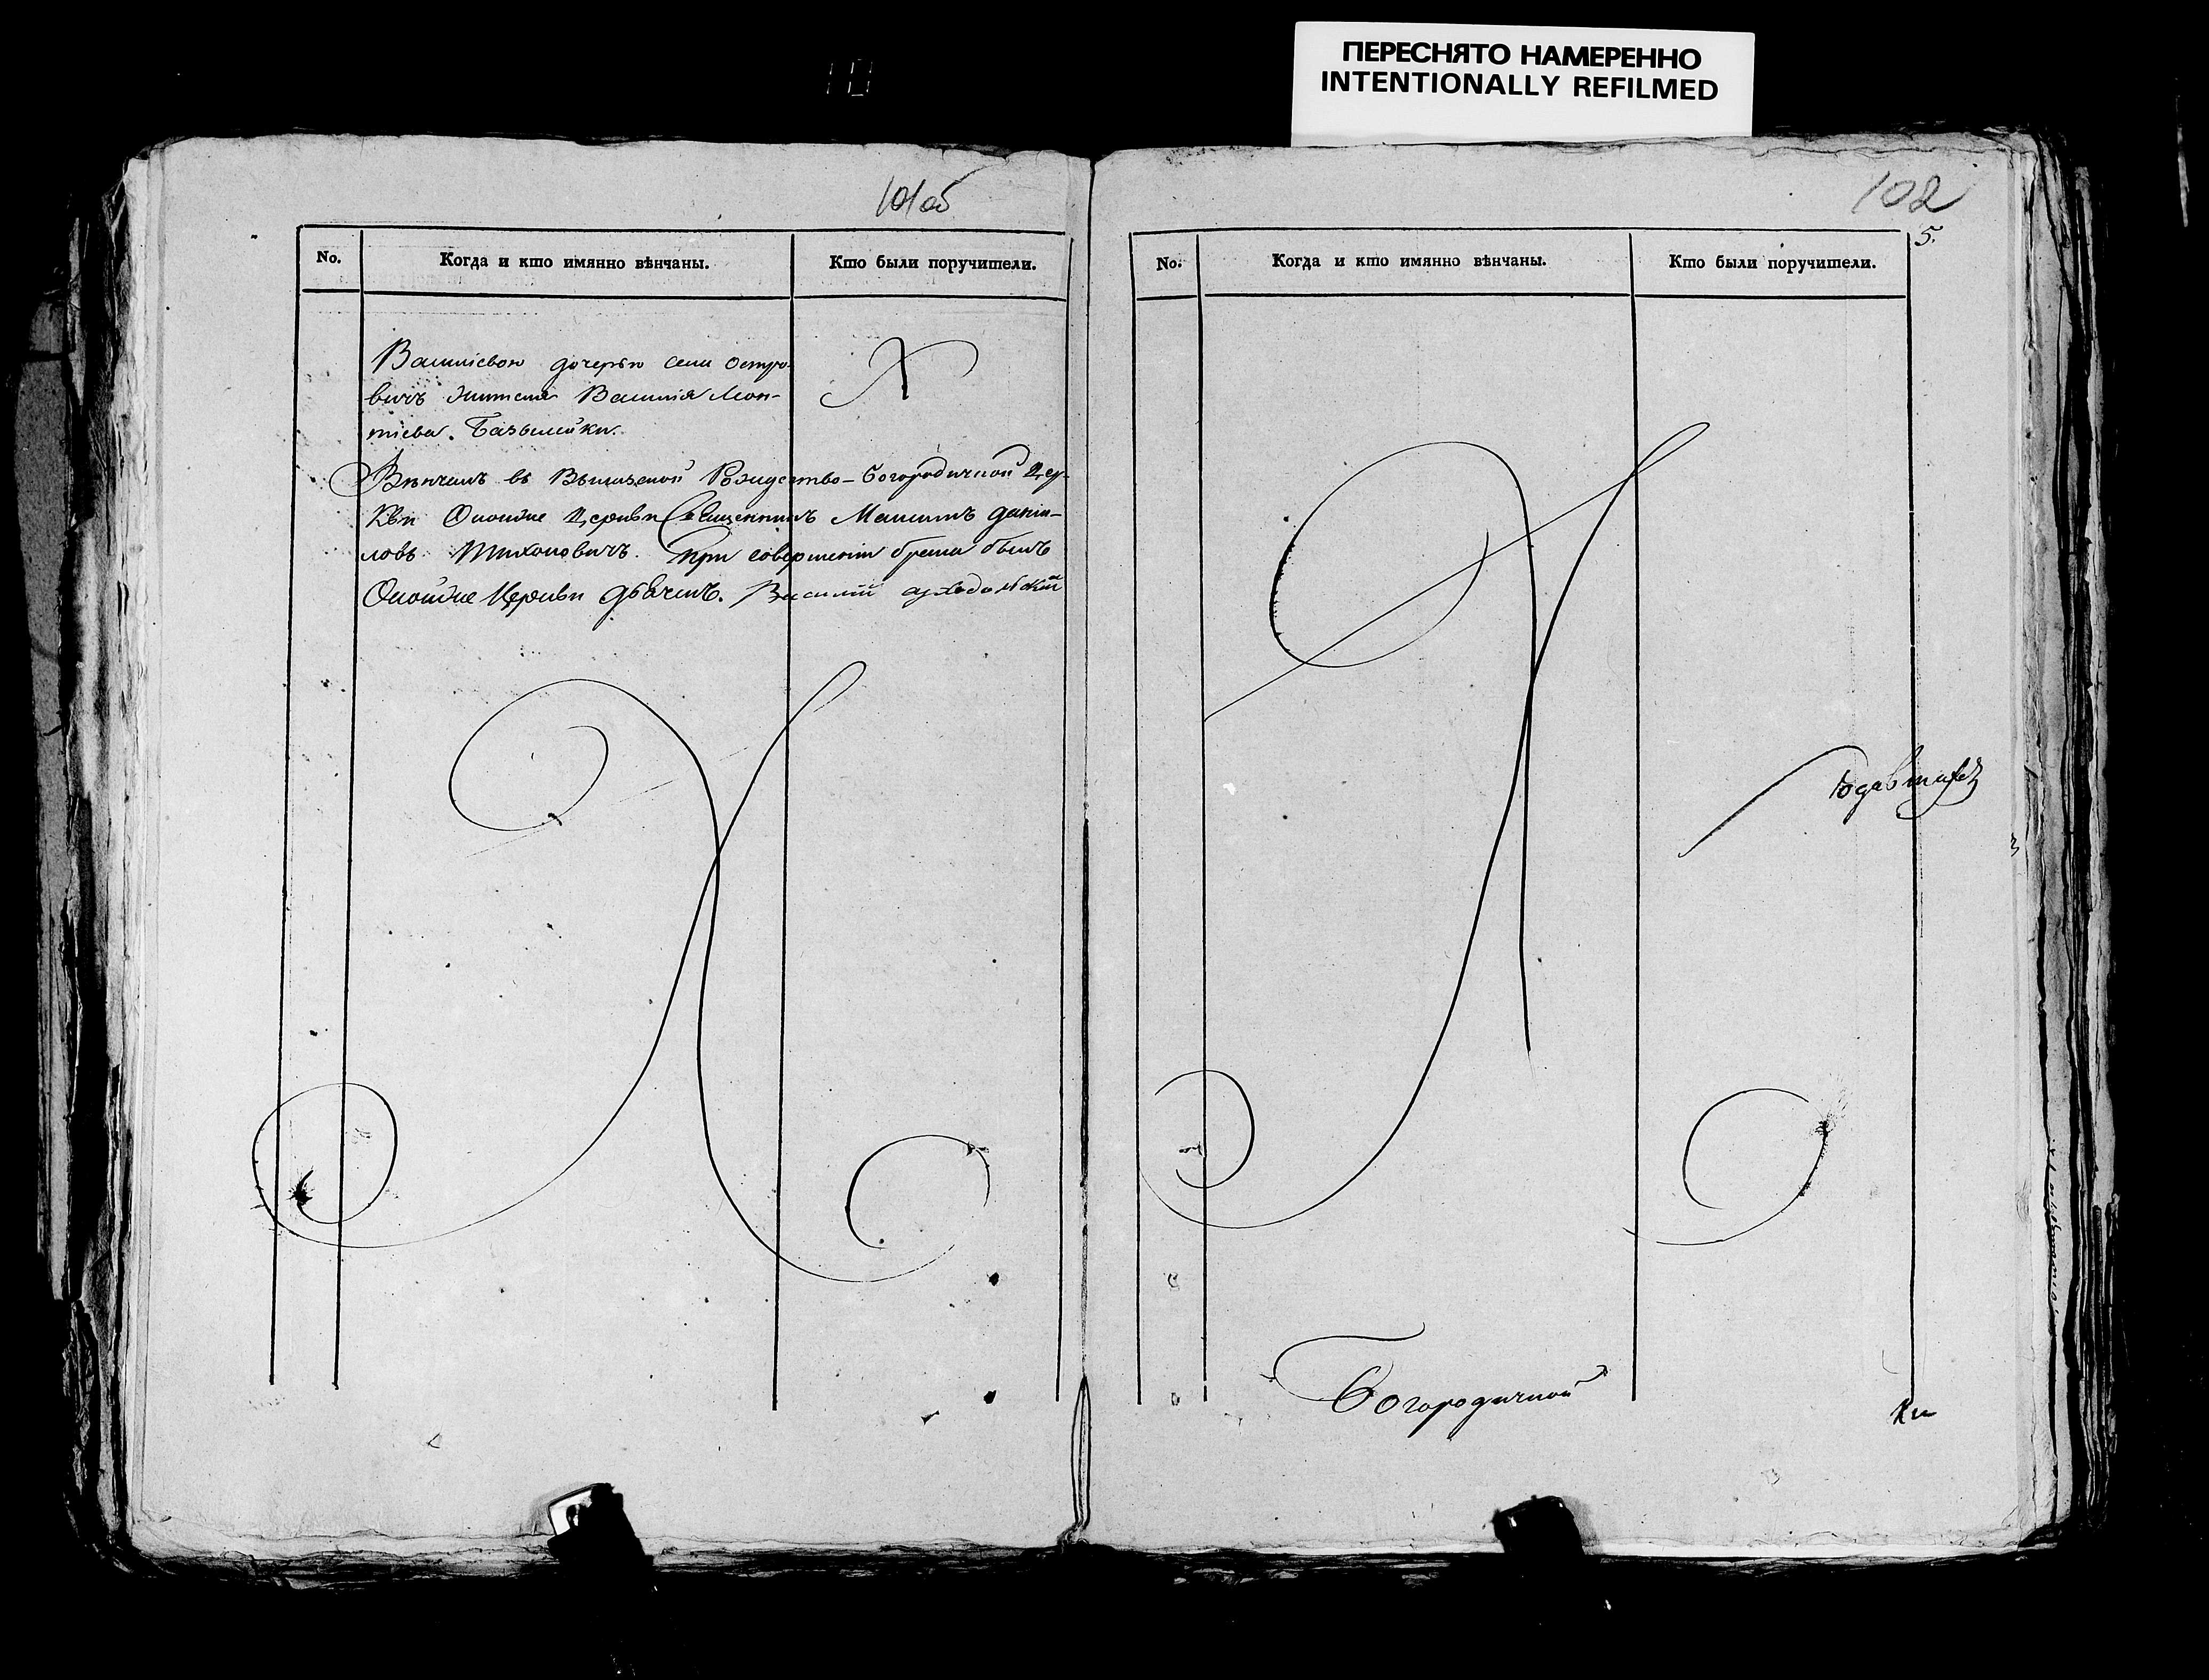 ПЕРЕСНЯТО НАМЕРЕННО
INTENTIONALLY REFILMED
101об
102
5.
No. Когда и кто имянно вѣнчаны. Кто были поручители.
Василіевою дочерью села Остро-
вичъ жителя Василія Леон-
тіева. Базылейки.
Вѣнчалъ въ Рождество-Богородичной Цер-
кви Оной же Церкви Священникъ Максимъ Дани-
ловъ Тихоновичъ. При совершеніи брака былъ
Оной же Церкви Дьячекъ. Василій
No. Когда и кто имянно вѣнчаны. Кто были поручители.
Богородичной
Ки